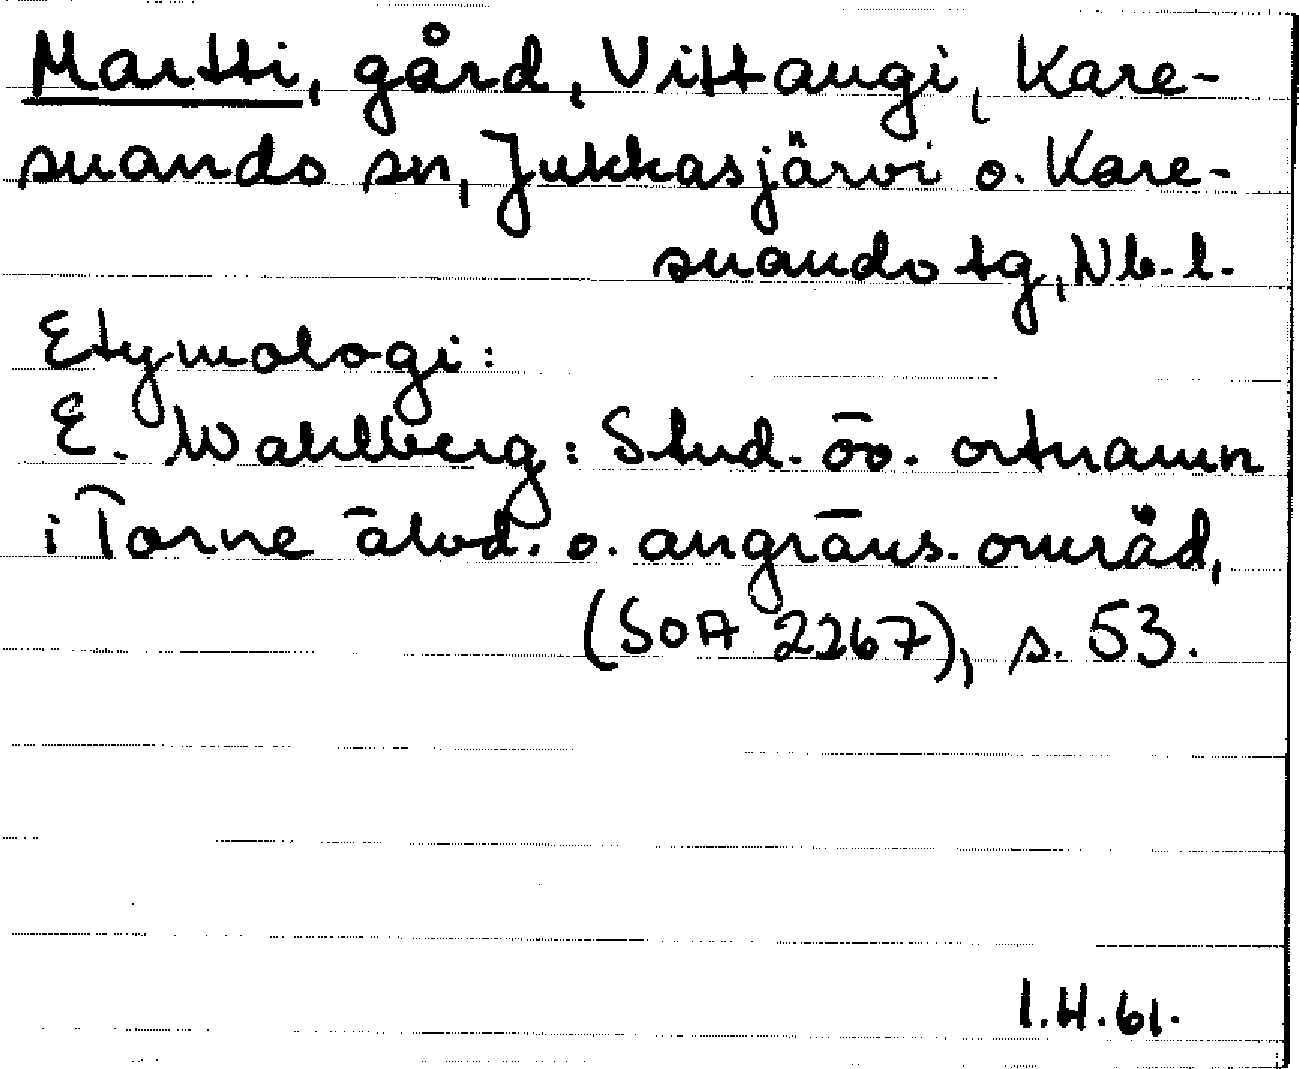 Martti, gård, Vittangi, Kare-
suando sn, Jukkasjärvi o. Kare-
suando tg, Nb. l.
Etymologi:
E. Wahlberg: Stud. öv. ortnamn
i Torne älvd. o. angräns. områd,
(SOA 2267), s. 53.
I.H.61.